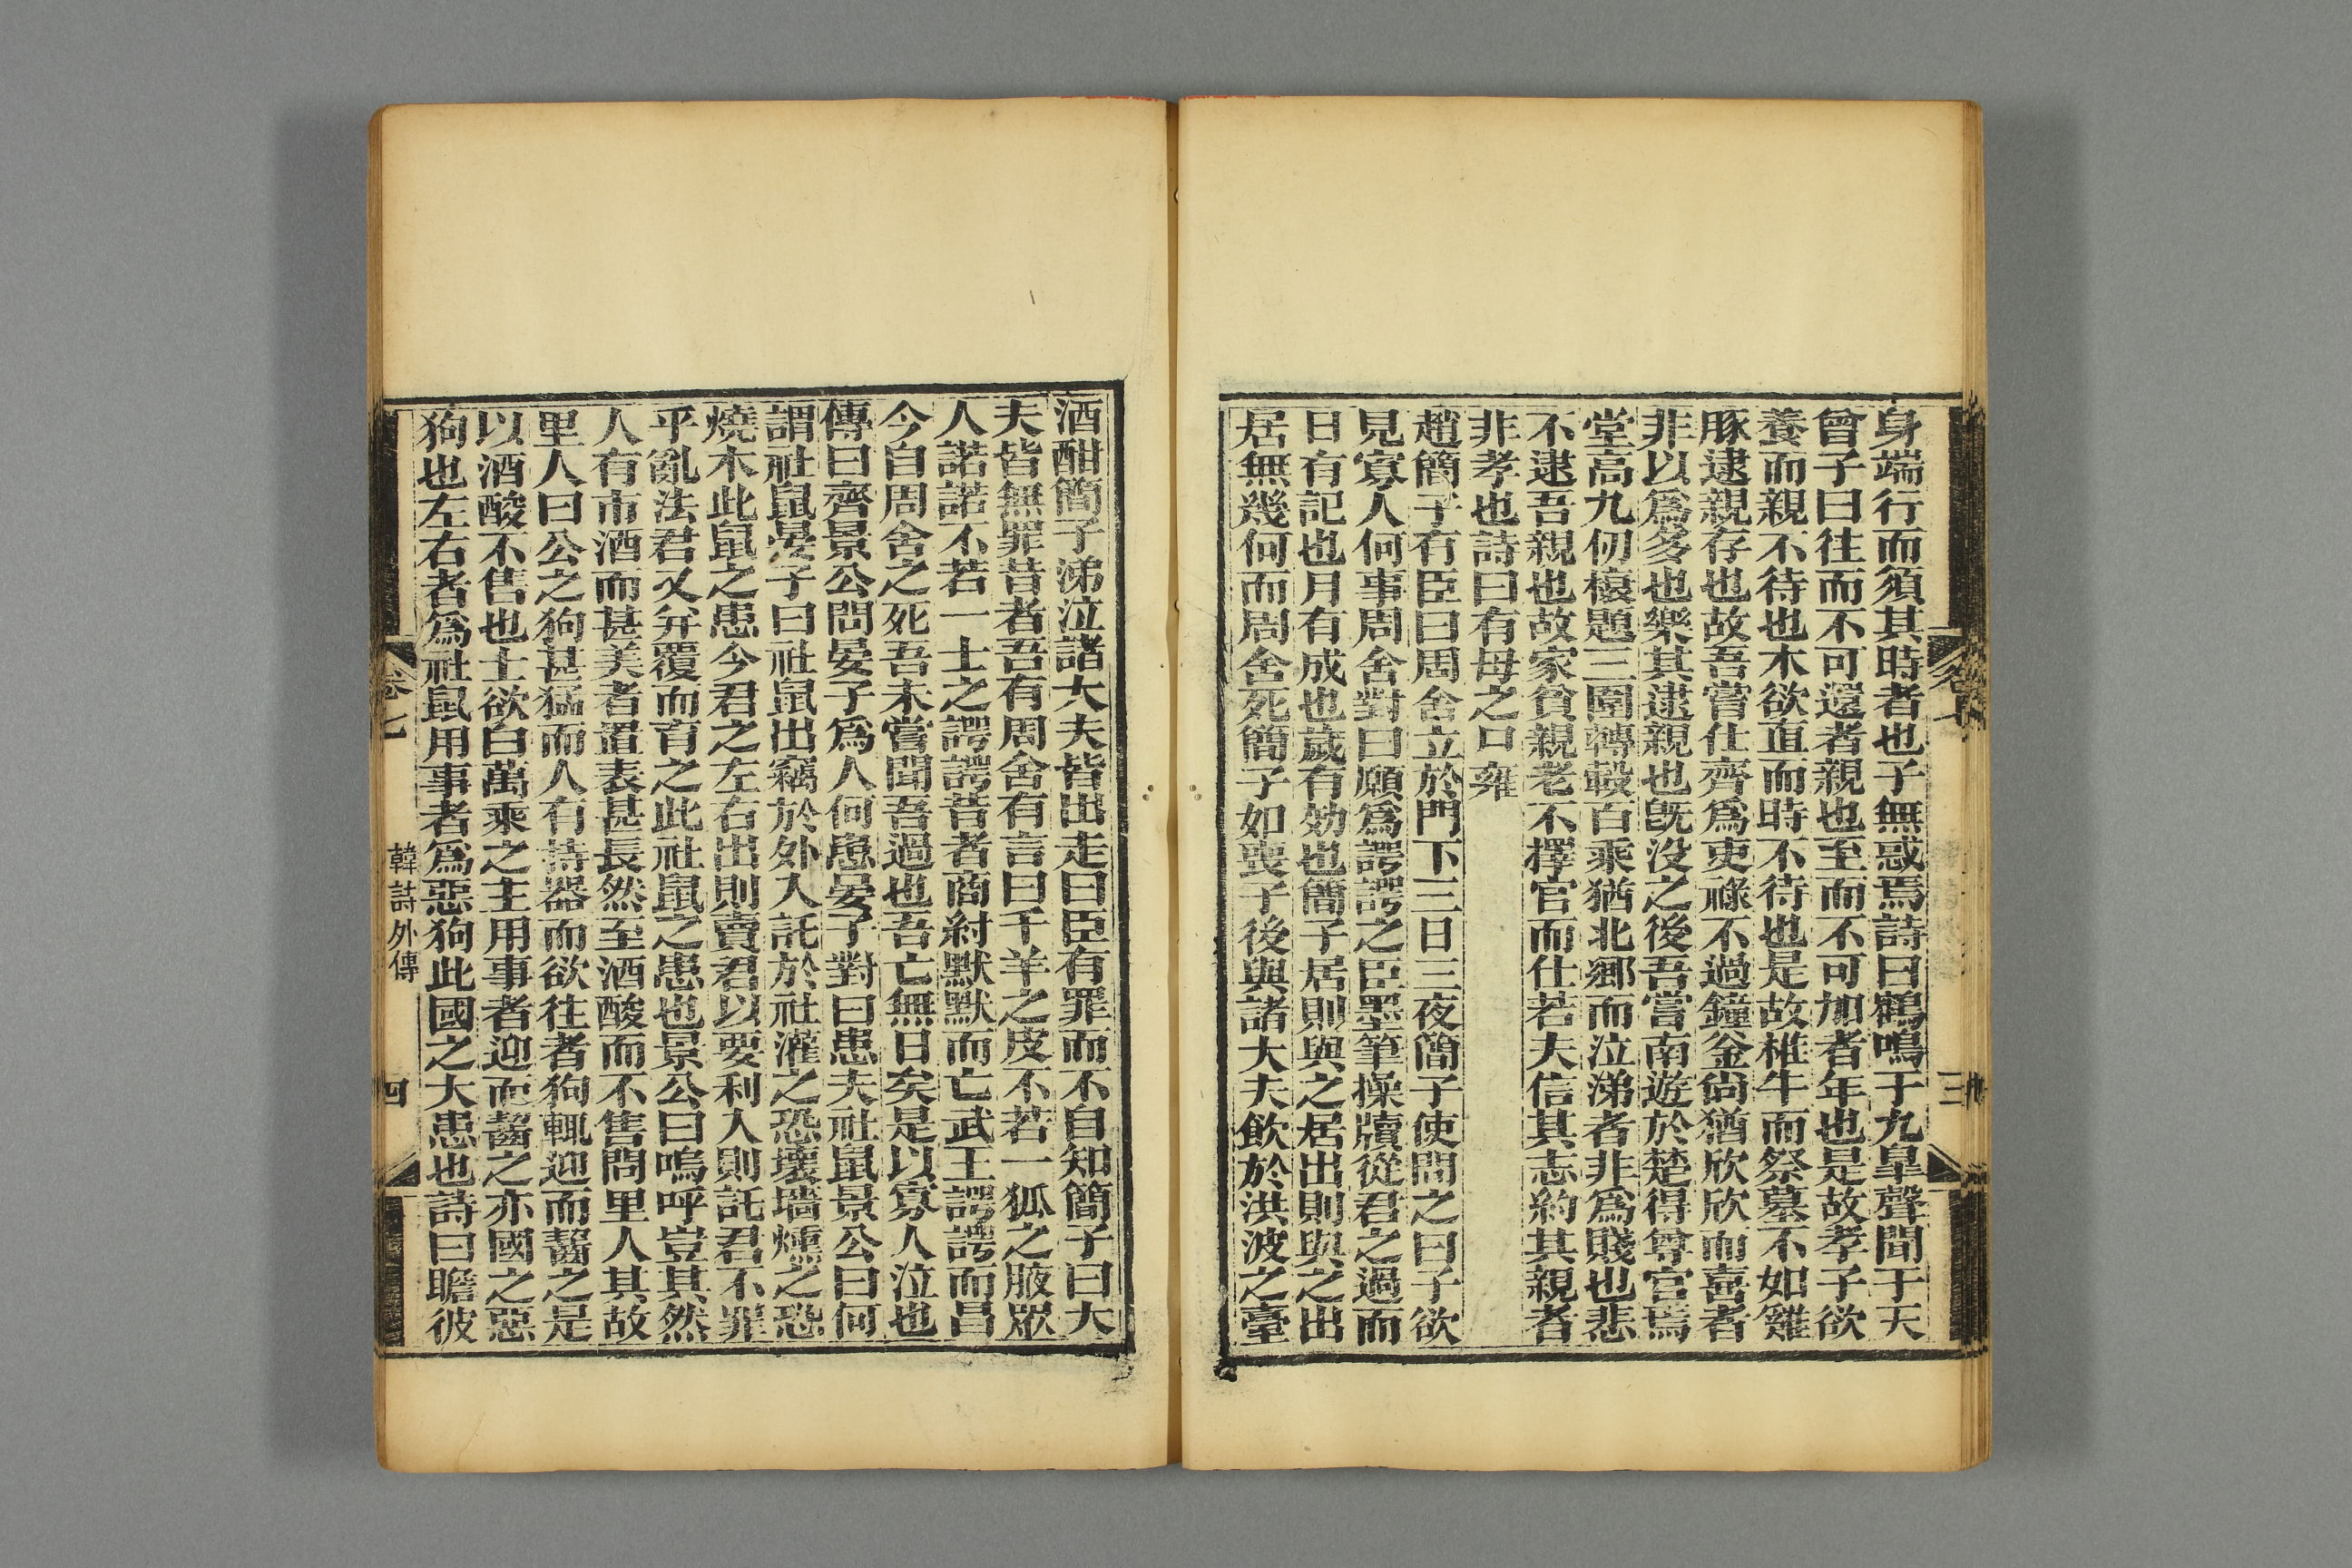 身端行而須其時者也子無惑焉詩曰鶴鳴于九皐聲聞于天
曾子曰往而不可還者親也至而不可加者年也是故孝子欲
養而親不待也木欲直而時不待也是故椎牛而祭墓不如雞
豚逮親存也故吾嘗仕齊爲吏祿不過鐘釜尚猶欣欣而喜者
非以爲多也樂其逮親也旣没之後吾嘗南遊於楚得尊官焉
堂高九仞榱題三圍轉轂百乘猶北鄉而泣涕者非爲賤也悲
不逮吾親也故家貧親老不擇官而仕若夫信其志約其親者
非孝也詩曰有母之尸雍
趙簡子有臣曰周舍立於門下三日三夜簡子使問之曰子欲
見寡人何事周舍對曰願爲諤諤之臣墨筆操牘從君之過而
日有記也月有成也歲有効也簡子居則與之居出則與之出
居無幾何而周舍死簡子如喪子後與諸大夫飮於洪波之臺
酒酣簡子涕泣諸大夫皆出走曰臣有罪而不自知簡子曰大
夫皆無罪昔者吾有周舍有言曰千羊之皮不若一狐之腋眾
人諾諾不若一士之諤諤昔者商紂默默而亡武王諤諤而昌
今自周舍之死吾未嘗聞吾過也吾亡無日矣是以寡人泣也
傳曰齊景公問晏子爲人何患晏子對曰患夫社鼠景公曰何
謂社鼠晏子曰社鼠出竊於外入託於社灌之恐壞墻燻之恐
燒木此鼠之患今君之左右出則賣君以要利入則託君不罪
乎亂法君又并覆而育之此社鼠之患也景公曰嗚呼豈其然
人有市酒而甚美者置表甚長然至酒酸而不售問里人其故
里人曰公之狗甚猛而人有持器而欲往者狗輒迎而齧之是
以酒酸不售也士欲白萬乘之主用事者迎而齧之亦國之惡
狗也左右者爲社鼠用事者爲惡狗此國之大患也詩曰瞻彼
卷七 韓詩外傳 四